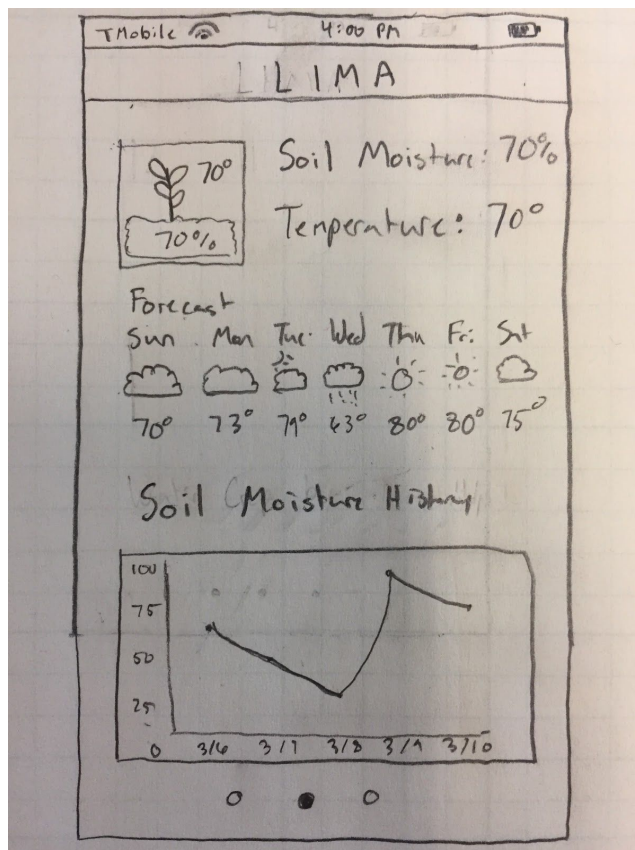 TMobile 4:00 PM
LIMA
70°
70%
Soil Moisture: 70%
Temperature: 70°
Forecast
Sun Mon Tue Wed Thu Fri Sat
70° 73° 79° 63° 80° 80° 75°
Soil Moisture History
100
75
50
25
0 3/6 3/7 3/8 3/9 3/10